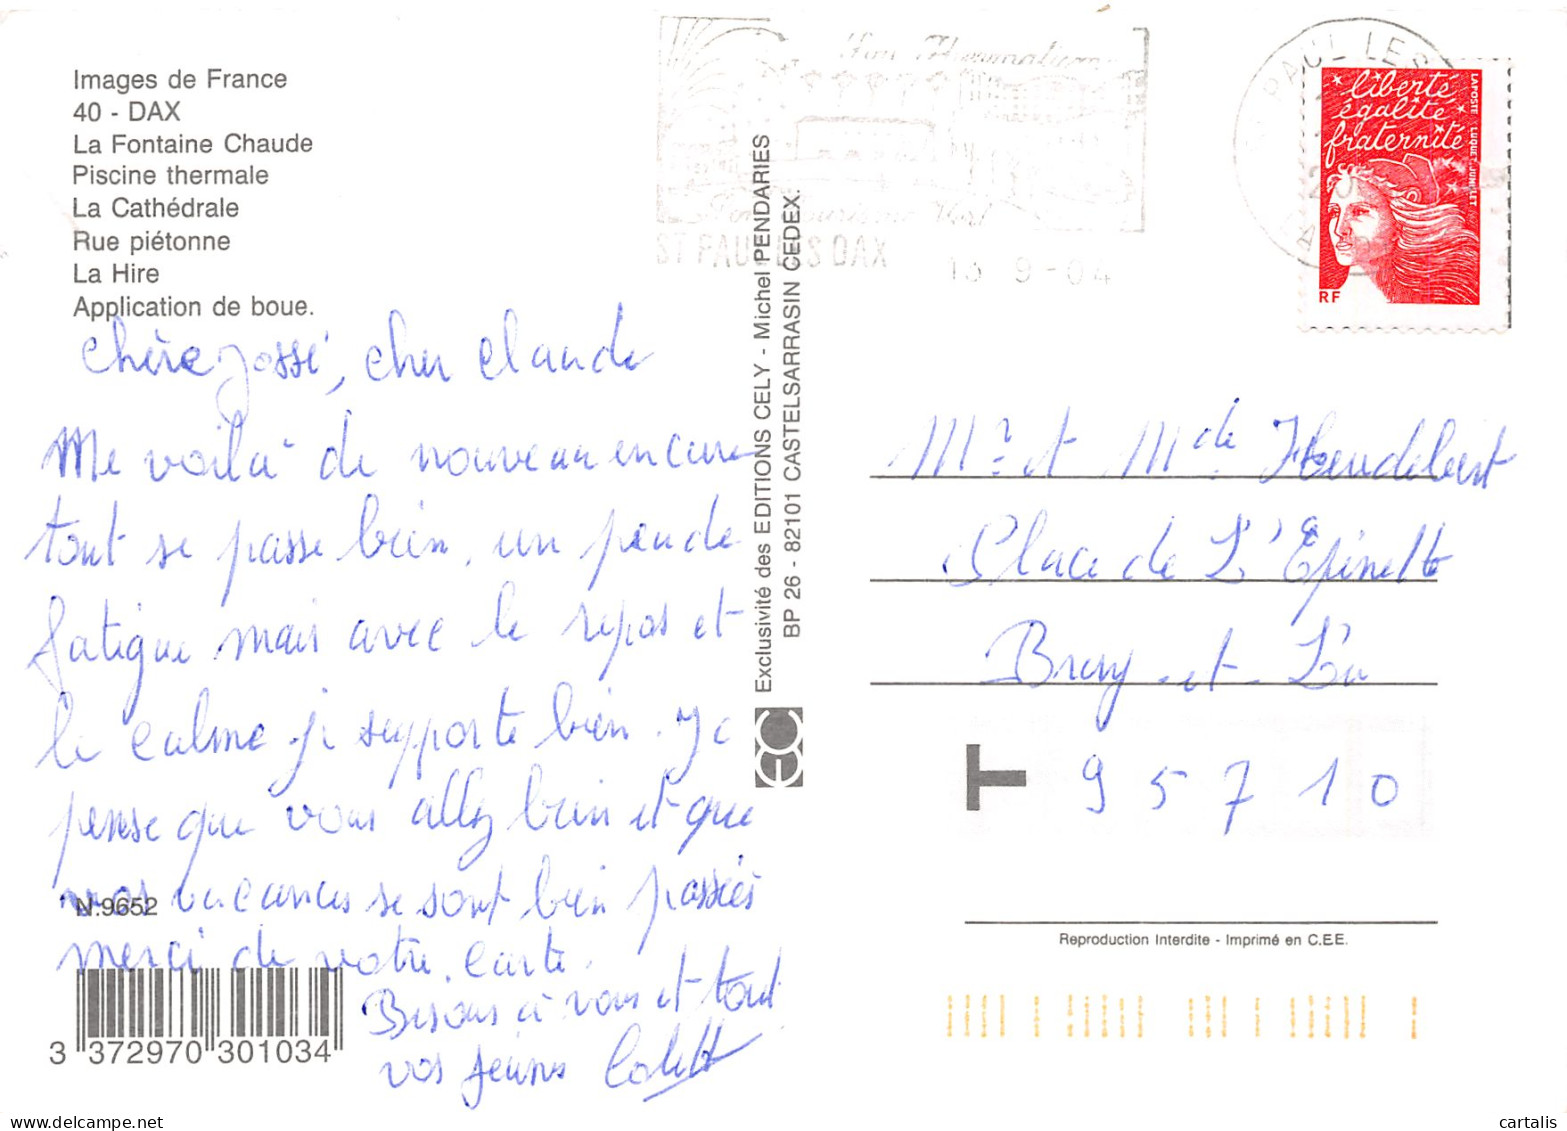 Images de France
40 - DAX
La Fontaine Chaude
Piscine thermale
La Cathédrale
Rue piétonne
La Hire
Application de boue.
Chère Jossé, cher Claude
Me voilà de nouveau en cure
tout se passe bien, un peu de
fatigue mais avec le repos et
le calme je supporte bien. Je
pense que vous allez bien et que
vos vacances se sont bien passées
merci de votre carte.
Bisous à vous et tout
vos jeunes Colette
N.9652
3 372970 301034
Exclusivité des EDITIONS CELY - Michel PENDARIES
BP 26 - 82101 CASTELSARRASIN CEDEX.
EC
ST PAUL LES DAX
13 9-04
PAUL LES
liberté
égalité
fraternité
LA POSTE LUQUET-JUMELET
RF
Mr et Mde Heudebert
Place de L'Epinette
Bray-et-Lu
T 95710
Reproduction Interdite - Imprimé en C.E.E.
cartalis